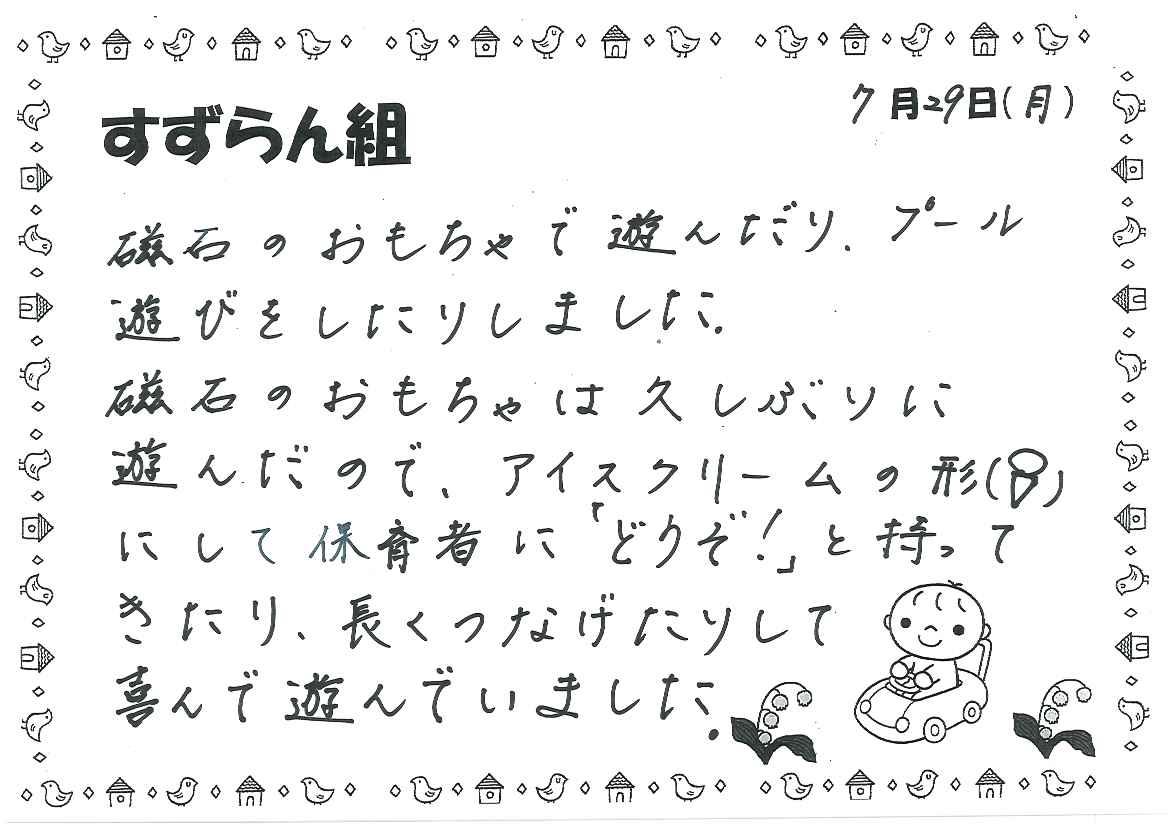 すずらん組
7月29日(月)
磁石のおもちゃで遊んだり、プール
遊びをしたりしました。
磁石のおもちゃは久しぶりに
遊んだので、アイスクリームの形( )
にして保育者に「どうぞ!」と持って
きたり、長くつなげたりして
喜んで遊んでいました。